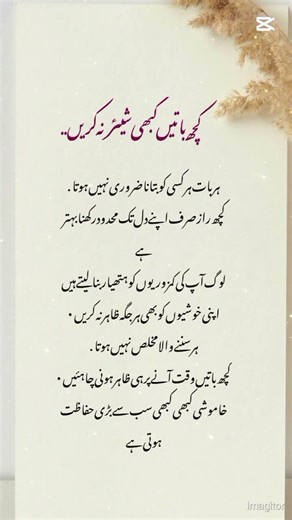 کچھ باتیں کبھی شیئر نہ کریں..
ہر بات ہر کسی کو بتانا ضروری نہیں ہوتا .
کچھ راز صرف اپنے دل تک محدود رکھنا بہتر
ہے
لوگ آپ کی کمزوریوں کو ہتھیار بنا لیتے ہیں
اپنی خوشیوں کو بھی ہر جگہ ظاہر نہ کریں •
ہر سننے والا مخلص نہیں ہوتا .
کچھ باتیں وقت آنے پر ہی ظاہر ہونی چاہئیں •
خاموشی کبھی کبھی سب سے بڑی حفاظت
ہوتی ہے
Imagitor